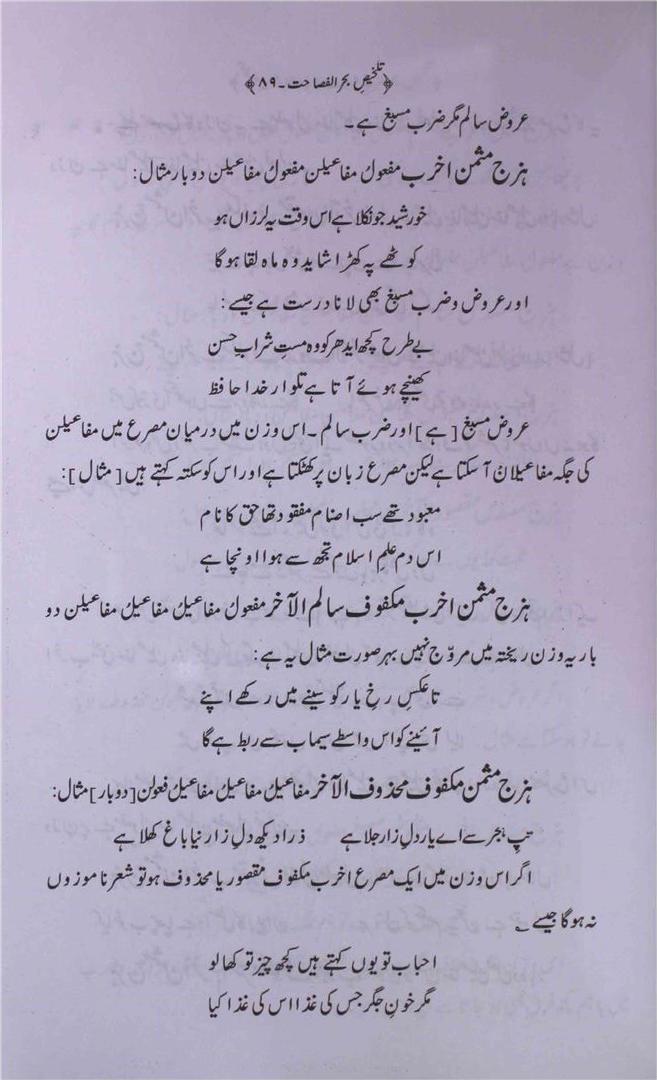 ﴿تلخیصِ بحر الفصاحت ۔ ۸۹﴾
عروض سالم مگر ضرب مسبغ ہے۔
ہزج مثمن اخرب مفعول مفاعیلن مفعولُ مفاعیلن دو بار مثال:
خورشید جو نکلا ہے اس وقت یہ لرزاں ہو
کوٹھے پہ کھڑا شاید وہ ماہ لقا ہوگا
اور عروض و ضرب مسبغ بھی لانا درست ہے جیسے:
بے طرح کچھ ایدھر کو وہ مستِ شراب حسن
کھینچے ہوئے آتا ہے تلوار خدا حافظ
عروض مسبغ [ہے] اور ضرب سالم۔ اس وزن میں درمیان مصرع میں مفاعیلن
کی جگہ مفاعیلان آ سکتا ہے لیکن مصرع زبان پر کھٹکتا ہے اور اس کو سکتہ کہتے ہیں [مثال]:
معبود تھے سب اصنام مفقود تھا حق کا نام
اس دم علمِ اسلام تجھ سے ہوا اونچا ہے
ہزج مثمن اخرب مکفوف سالم الآخر مفعول مفاعیلُ مفاعیلُ مفاعیلن دو
بار یہ وزن ریختہ میں مروّج نہیں بہر صورت مثال یہ ہے:
تا عکسِ رخِ یار کو سینے میں رکھے اپنے
آئینے کو اس واسطے سیماب سے ربط ہے گا
ہزج مثمن مکفوف محذوف الآخر مفاعیلُ مفاعیلُ مفاعیلُ فعولن [دو بار] مثال:
تپِ ہجر سے اے یار دلِ زار جلا ہے ذرا دیکھ دلِ زار نیا باغ کھلا ہے
اگر اس وزن میں ایک مصرع اخرب مکفوف مقصور یا محذوف ہو تو شعر ناموزوں
نہ ہوگا جیسے؎
احباب تو یوں کہتے ہیں کچھ چیز تو کھا لو
مگر خونِ جگر جس کی غذا اس کی غذا کیا